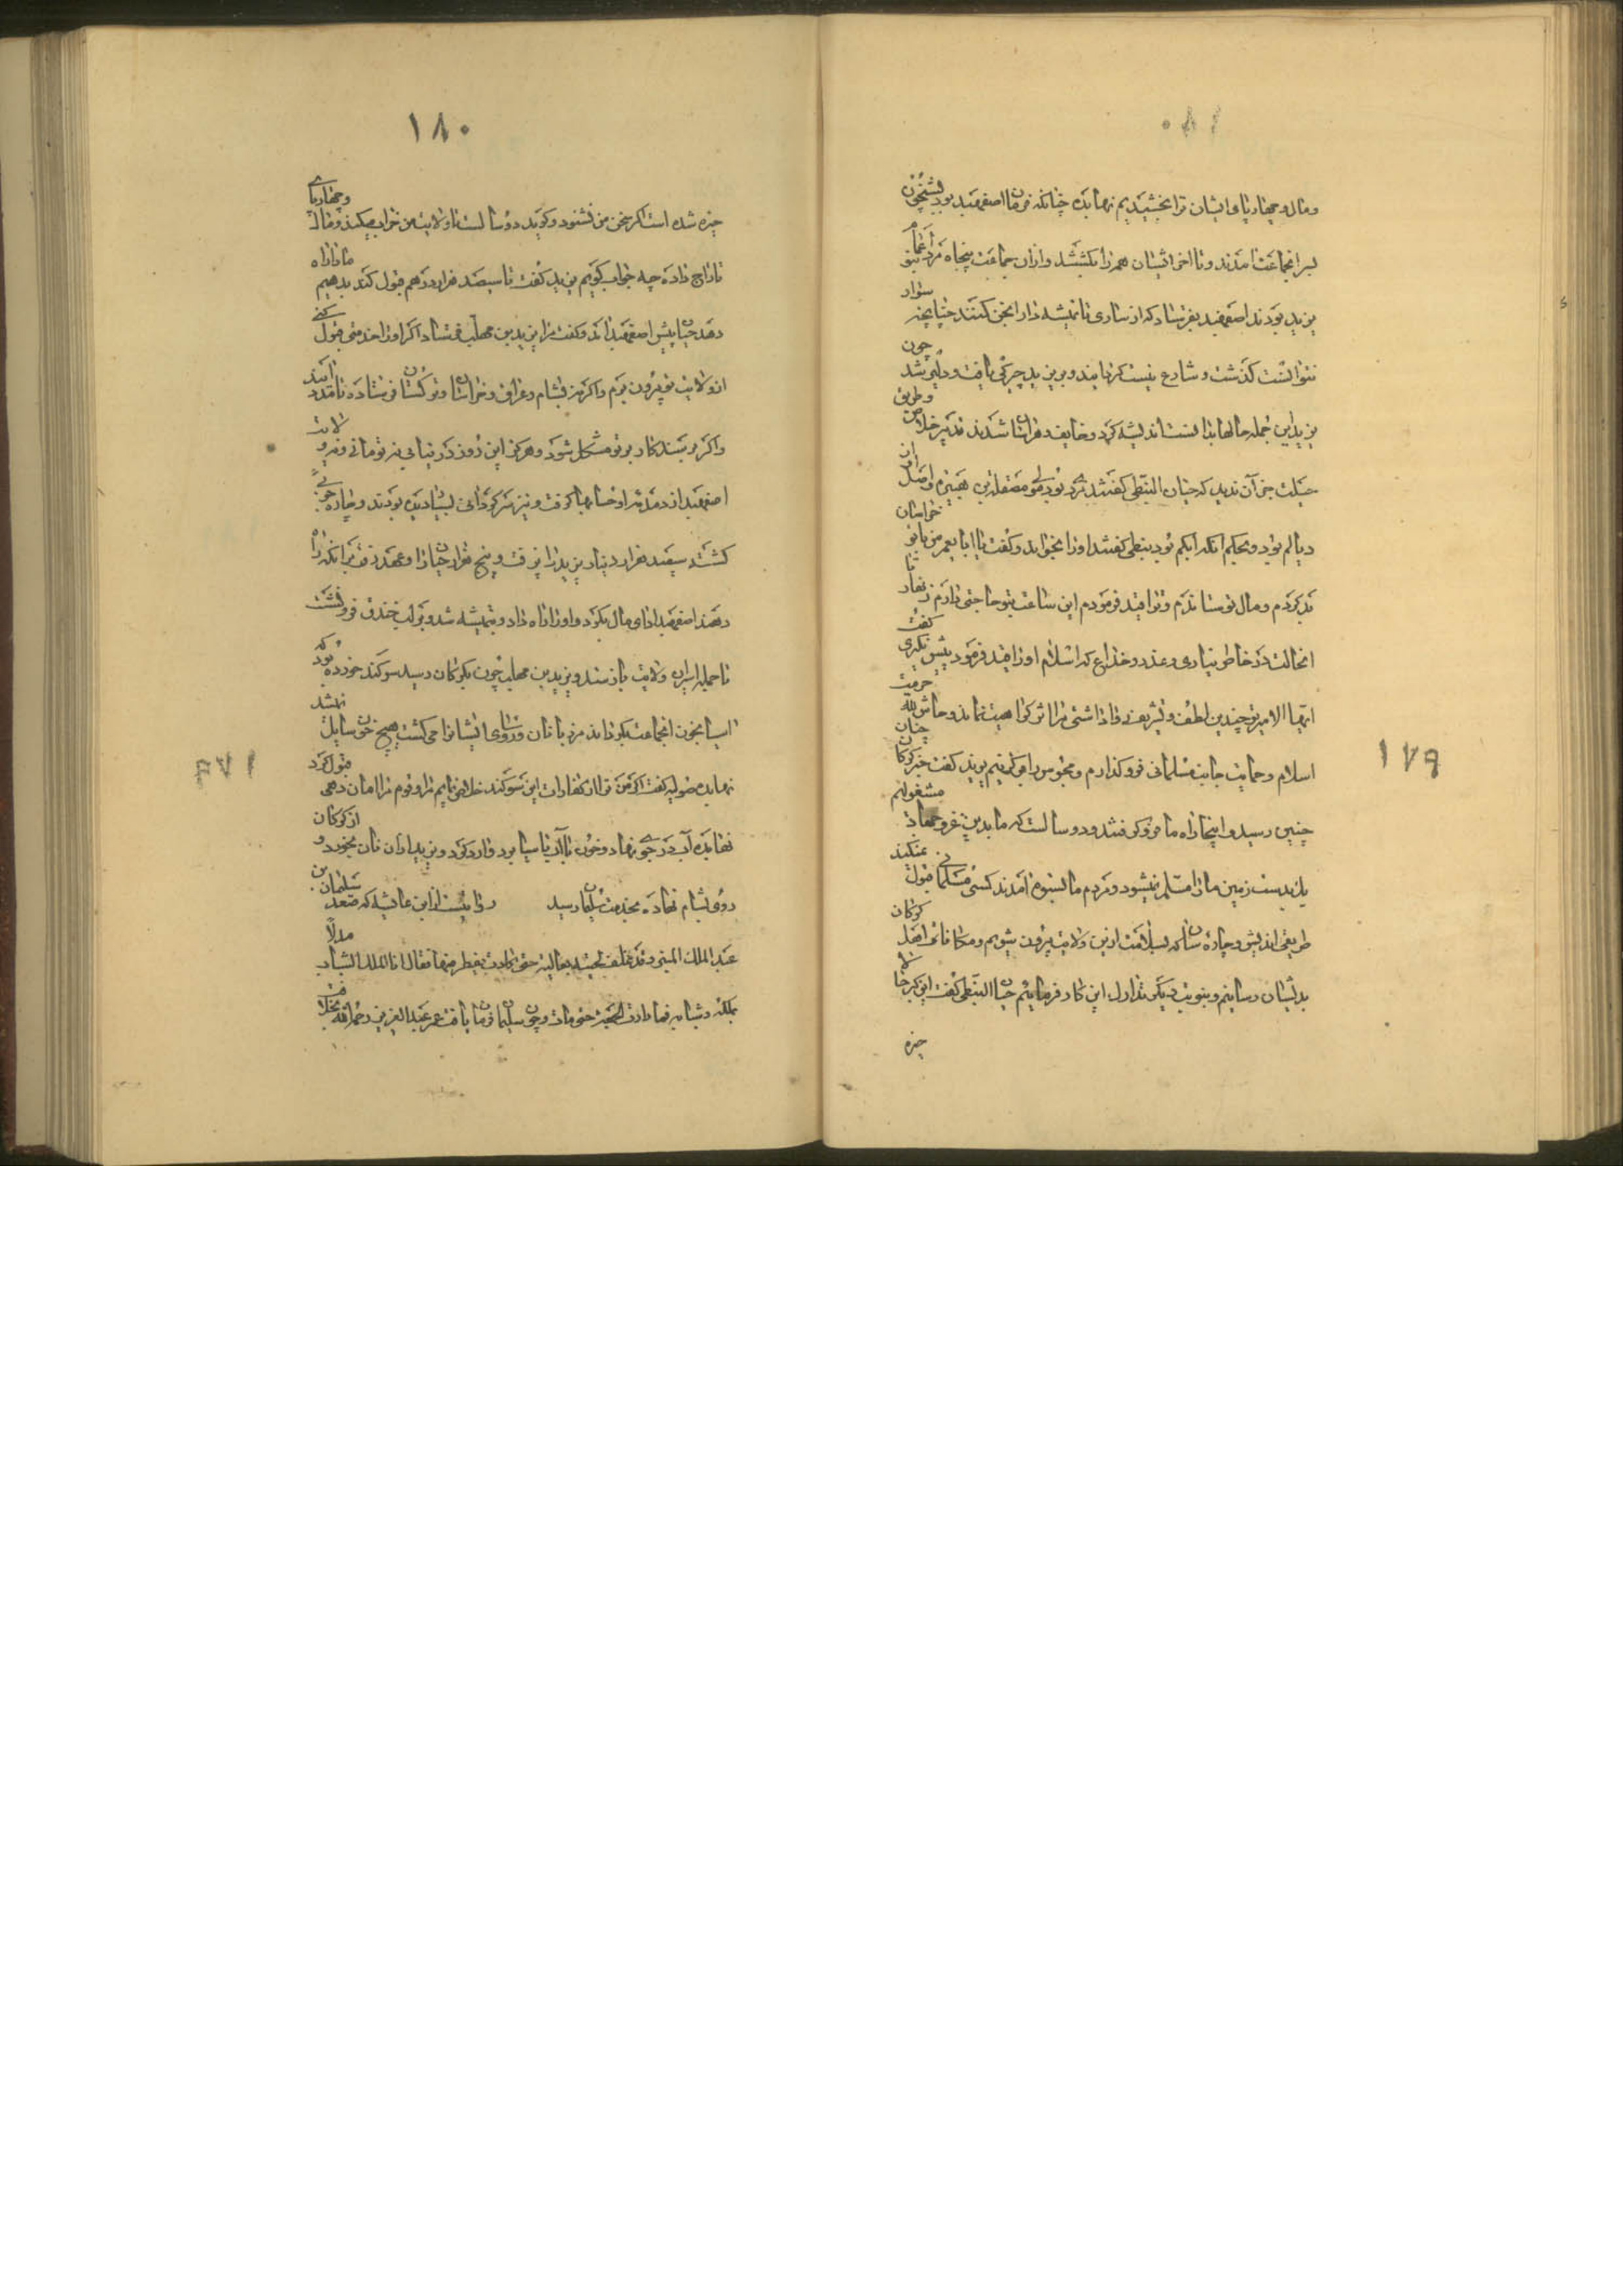 ١٧٩
ومال و چهارپای ایشان ترا بخشیدیم نهابده چنانکه فرمان اصفهبد بود بشبیخون
بسر انجماعت آمدند و تا آخر ایشان همه را بکشتند و ازان جماعت پنجاه مرد اعمام بنو
یزید بودند اصفهبد بفرستاد که از ساری تا تمیشه دارانجن کنند چنانچه سوار
نتوانست گذشت و شارع نیست گردانیدند و بر یزید چیرگی یافت و دلیر شد چون
یزید این جمله حالها بدانست اندیشه کرد و خایف و هراسان شدند تدبیر خلاص و طریق
حیلت جز آن ندید که حیان النبطی گفتند مردی بود مولی مصقلة بن هبیره و اصل از
دیالم بود و بحکم آنکه ابکم بود نبطی گفتند او را بخواند و گفت یا ابا معمر من با تو خراسان
بد کردم و مال تو ستاندم و ترا قید فرمودم این ساعت بتو حاجتی دارم زنهار تا
انحالت در خاطر نیاری و عذر و خداع که اسلام او را قید فرمود پیش نگیری گفت
ایها الامیر تو چندین لطف و تشریف داداشتی مرا اثر کراهیت نماند و حاش لله حرمت
اسلام و حمایت جانب مسلمانی فروگذارم و مجوس را قوی کنیم یزید گفت خبر گرگان چنان
چنین رسید و اینجا راه ما فرو گرفتند و دو سالست که ما بدین غزو جهاد مشغولیم
یک بدست زمین ما را مسلم نمیشود و مردم ما بستوه آمدند کسی مسلمانی قبول نمیکند
طریقی اندیش و چاره ساز که بسلامت ازین ولایت بیرون شویم و مکافات اهل گرگان
بدیشان رسانیم و بنوبت دیگر تدارک این کار فرماییم حیان النبطی گفت این گبر حالا
چیره
١٨٠
چیره شده است اگر سخن من نشنود و گوید دو سالست تا ولایت من خراب میکند و مال و چهارپای
تاراج داده چه جواب گویم یزید گفت تا سیصد هزار درهم قبول کند بدهیم ما را راه
دهد حیان پیش اصفهبد آمد و گفت مرا یزید بن مهلب فرستاد اگر او را خدمتی قبول کنی
از ولایت تو بیرون بروم و اگر نه بشام و عراق و خراسان و ترکستان فرستاده تا مدد آیند
و اگر برسند کار بر تو مشکل شود و هرگز این روز در نیابی نه تو مانی و نه ولایت
اصفهبد از دمدمه او حسابها گرفت و نیز مردم ... بسیار دیده بودند و بیچاره
گشته سیصد هزار دینار یزید پذیرفت و پنج هزار حیان را و عهد رفت برانکه راه
دهند اصفهبد ادای مال بکرد و او را راه داد و بتمیشه شد و بر لب خندق فرو نشست
تا جمله اسیران ولایت باز ستد و یزید بن مهلب چون بگرگان رسید سوگند خورده بود که
آسیا بخون انجماعت بگرداند مردمانان و روسای ایشان را می کشت هیچ خون سایل نمیشد
نهابده صول گفت اگر من ترا از کفارات این سوگند خلاص نمایم مرا و قوم مرا امان دهی قبول کرد
نهابده آب در جوی نهاد و خون با آن تا آسیا برد و آرد کرد و یزید ازان نان بخورد و از گرگان
روی بشام نهاده بخدمت سلیمان رسید روایتست از ابن عایشه که صعد سلیمان بن
عبد الملک المنبر و قد غلف لحیته بغالیة حتی کادت تقطر منها فقال انا الملک الشاب مدلاً
بملکه و شبابه فما دارت الجمعة حتی مات و چون سلیمان فرمان یافت عمر عبد العزیز رحمه الله بخلافت